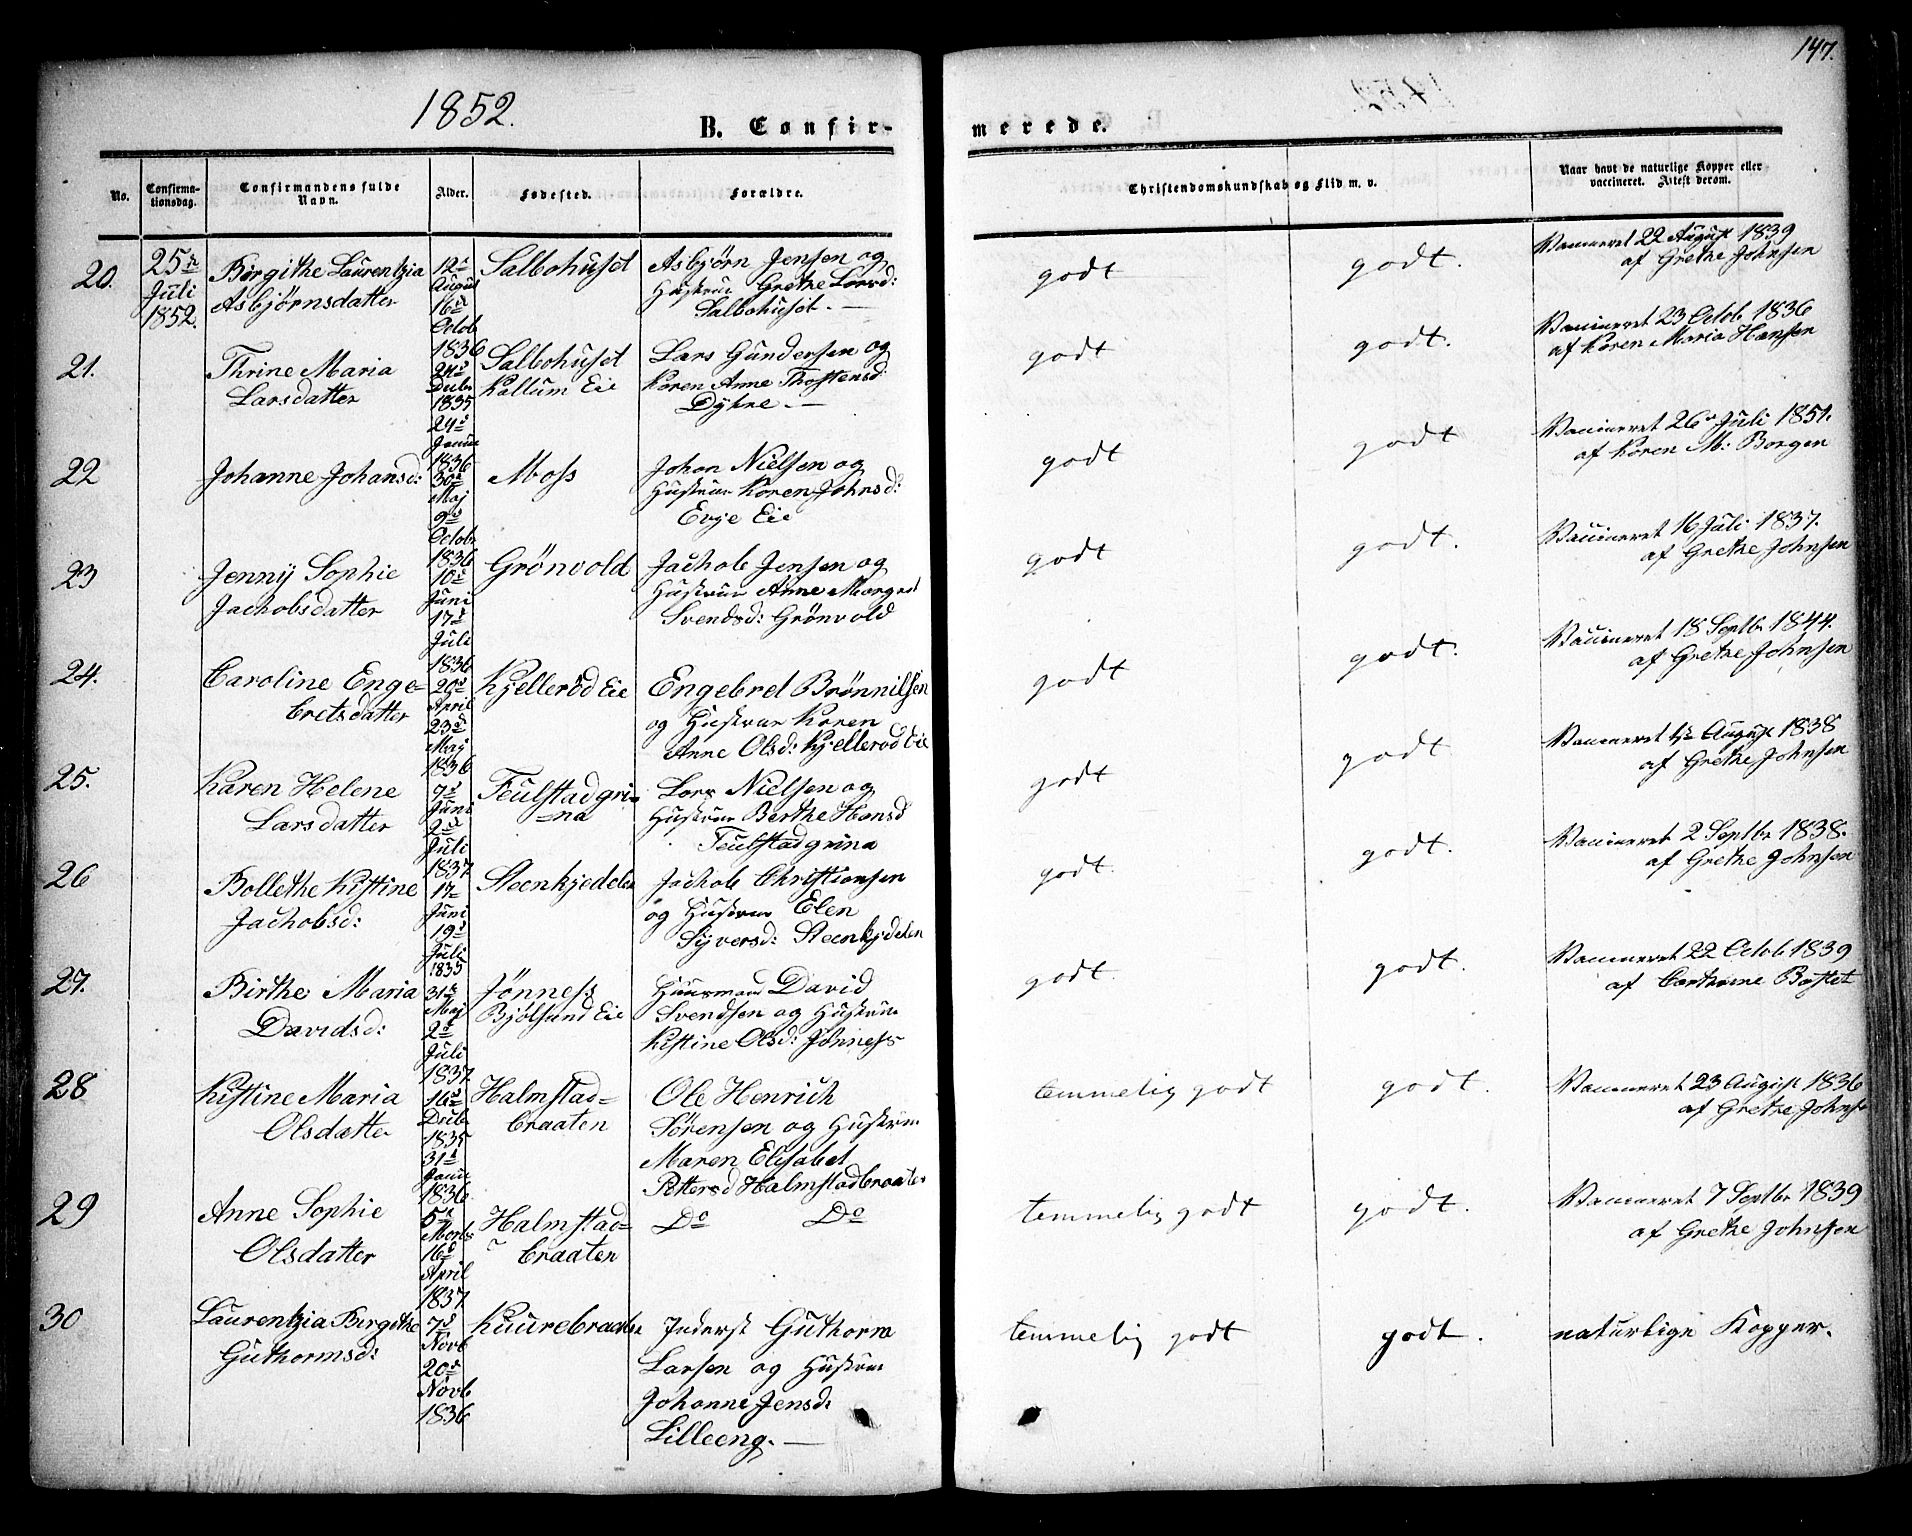 147.
1852.
B. Confir-
merede.
No.
Confirma-
tionsdag.
Confirmandens fulde
Navn.
Alder.
Fødested.
Forældre.
Christendomskundskab og Flid m. v.
Naar havt de naturlige Kopper eller
vaccineret. Attest derom.
20.
25de
Juli
1852.
Birgithe Laurentzia
Asbjørnsdatter
12te
August
16de
Octob
1836
Salbohuset
Asbjørn Jensen og
Hustrue Grethe Larsd:
Salbohuset. —
godt
godt.
Vaccineret 22 August 1839
af Grethe Johnsen
21.
Thrine Maria
Larsdatter
24de
Decbr
1835
24de
Januar
1836
Salbohuset
Kallum Eie
Lars Gundersen og
Karen Anne Thostensd
Dyhre —
godt
godt.
Vaccineret 23 Octob 1836
af Karen Maria Hansen
22
Johanne Johansd:
30de
Maj
9de
Octobr
1836
Moss
Johan Nielsen og
Hustrue Karen Johnsd:
Evje Eie
godt
godt
Vaccineret 26de Juli 1851.
af Karen M: Borgen
23
Jenny Sophie
Jachobsdatter
10de
Juni
17de
Juli
1836
Grönvold
Jachob Jensen og
Hustrue Anne Margret
Svendsd: Grönvold
godt
godt.
Vaccineret 16 Juli 1837.
af Grethe Johnsen
24.
Caroline Enge-
bretsdatter
20de
April
23de
Maj
1836
Kjelleröd Eie
Engebret Brønnilsen
og Hustrue Karen
Anne Olsd: Kjelleröd Eie
godt
godt.
Vaccineret 18 Septbr 1844.
af Grethe Johnsen
25.
Karen Helene
Larsdatter
7de
Juni
2de
Juli
1837
Feulstadgri-
=na
Lars Nielsen og
Hustrue Berthe Hansd
Feulstadgrina
godt
godt
Vaccineret August 1838
af Grethe Johnsen
26
Bollethe Kistine
Jachobsd:
17de
Juni
19de
Juli
1835
Steenkjedelen
Jachob Christiansen
og Hustrue Elen
Syversd: Steenkjedelen
godt.
godt.
Vaccineret 2 Septbr 1838.
af Grethe Johnsen
27.
Birthe Maria
Davidsd:
31te
Maj
2de
Juli
1837
Jönness
Bjölsund Eie
Huusmand David
Svendsen og Hustrue
Kistine Olsd: Jönness
godt.
godt.
Vaccineret 22 Octob 1839
af Cathrine Bastet
28
Kistine Maria
Olsdatter
16de
Decbr
1835
31te
Janr
1836
Halmstad=
braaten
Ole Henrich
Sørensen og Hustrue
Maren Elisabet
Pettersd Halmstadbraaten
temmelig godt
godt.
Vaccineret 23 August 1836
af Grethe Johns
29
Anne Sophie
Olsdatter
5te
Marts
16de
April
1837
Halmstad=
braaten
Do Do
temmelig godt
godt.
Vaccineret 7 Septbr 1839
af Grethe Johnsen
30
Laurentzia Birgethe
Guthormsd:
7de
Novb
20de
Novb
1836
Kuurebraaten
Inderst Guthorm
Larsen og Hustrue
Johanne Jensd:
Lilleeng. —
temmelig godt
godt.
naturlige Kopper.